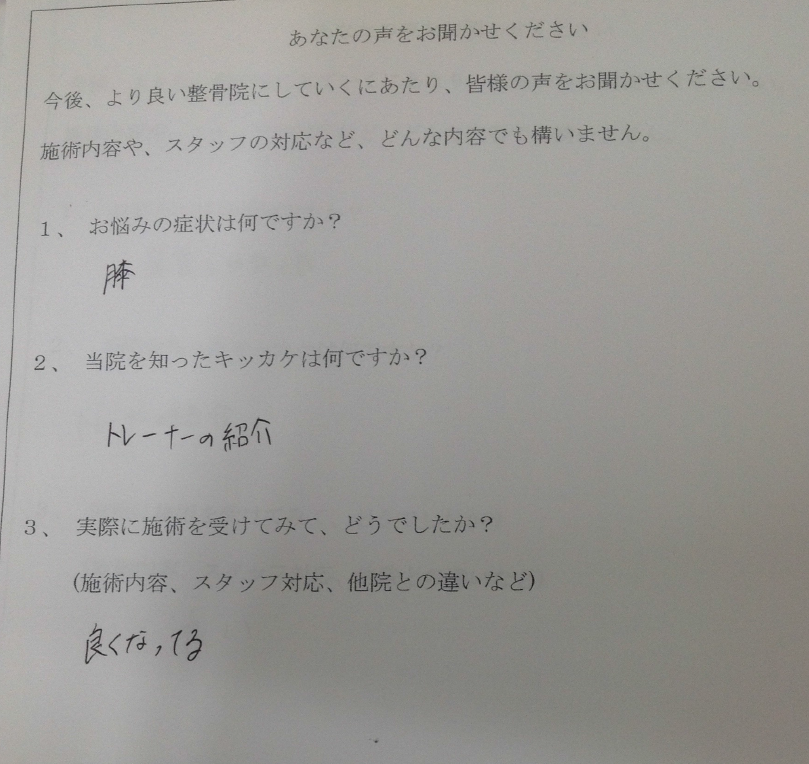 あなたの声をお聞かせください
今後、より良い整骨院にしていくにあたり、皆様の声をお聞かせください。
施術内容や、スタッフの対応など、どんな内容でも構いません。
1、 お悩みの症状は何ですか？
膝
2、 当院を知ったキッカケは何ですか？
トレーナーの紹介
3、 実際に施術を受けてみて、どうでしたか？
(施術内容、スタッフ対応、他院との違いなど)
良くなってる